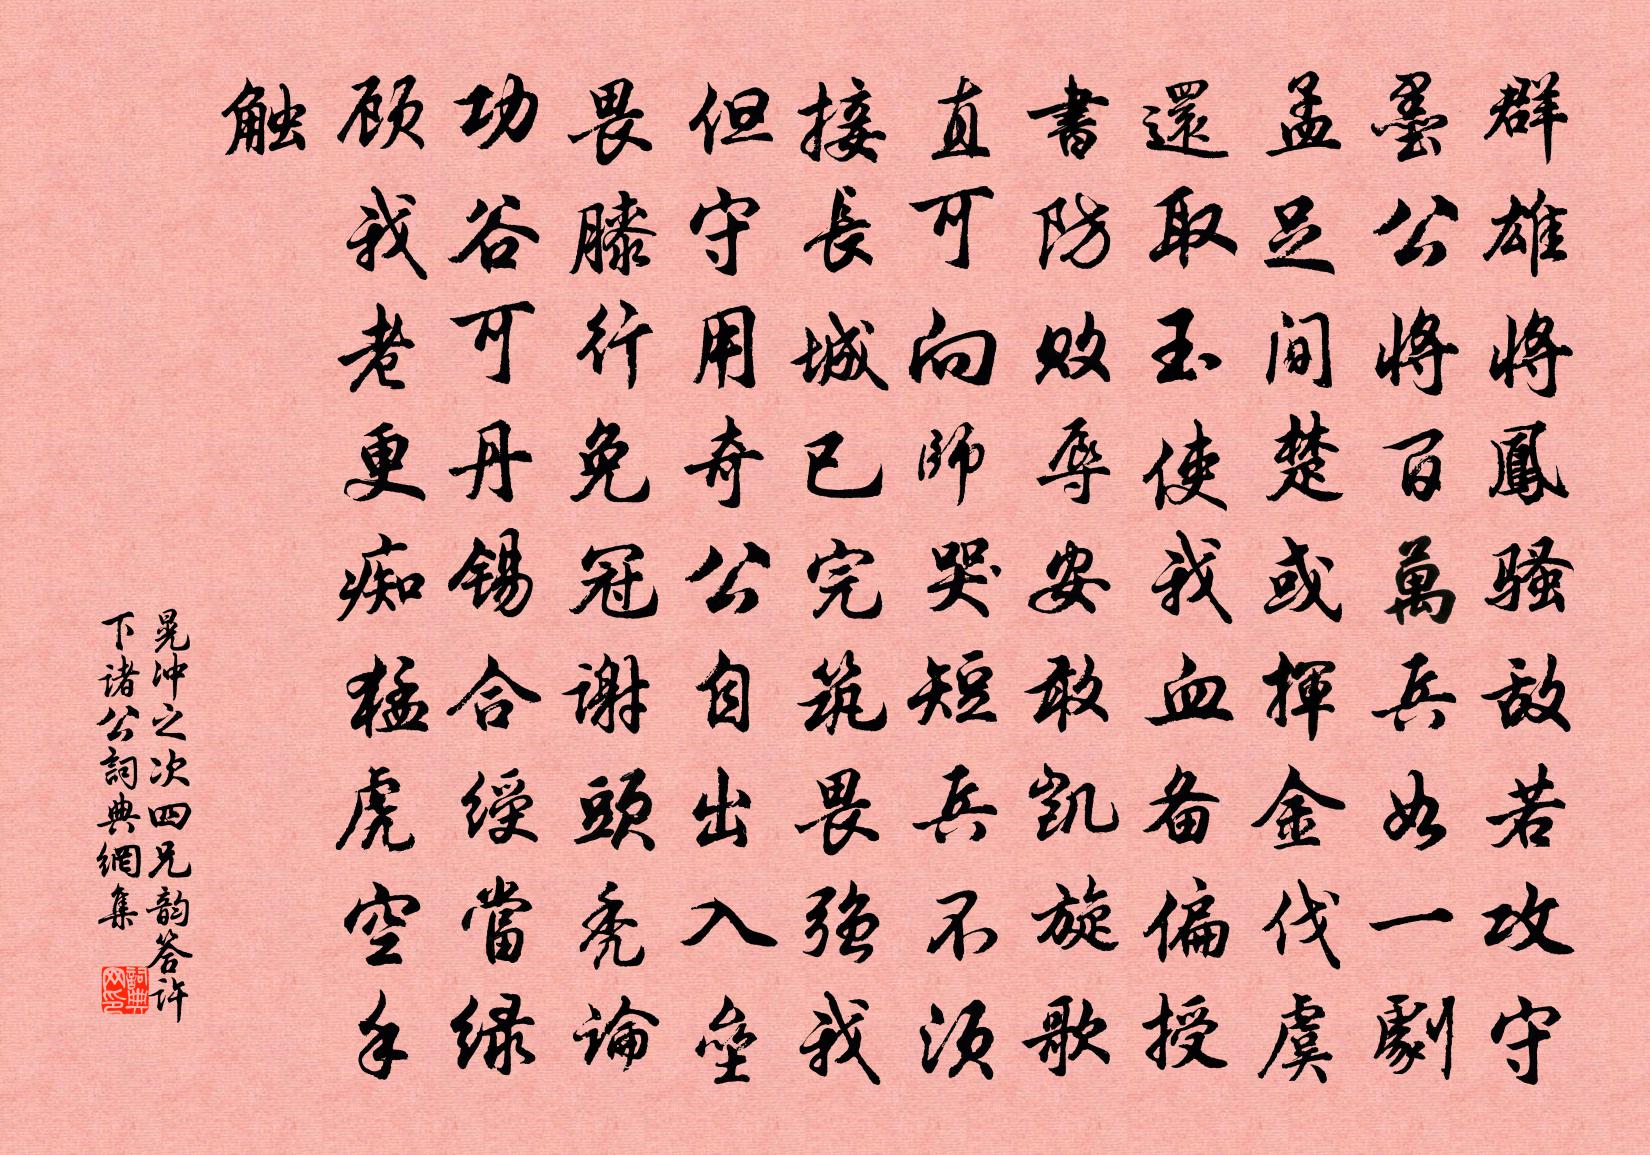 群雄將鳳騷敵若攻守
墨公將百萬兵如一劇
孟足间楚或揮金伐虞
還取玉使我血备偏授
書防敗辱安敢凯旋歌
直可向師哭短兵不須
接長城已完筑畏强我
但守用奇公自出入垒
畏膝行免冠謝頭秃論
功谷可丹锡合綬當绿
顾我老更痴猛虎空手
触
晁沖之次四兄韵答許
下诸公詞典網集
詞典网印